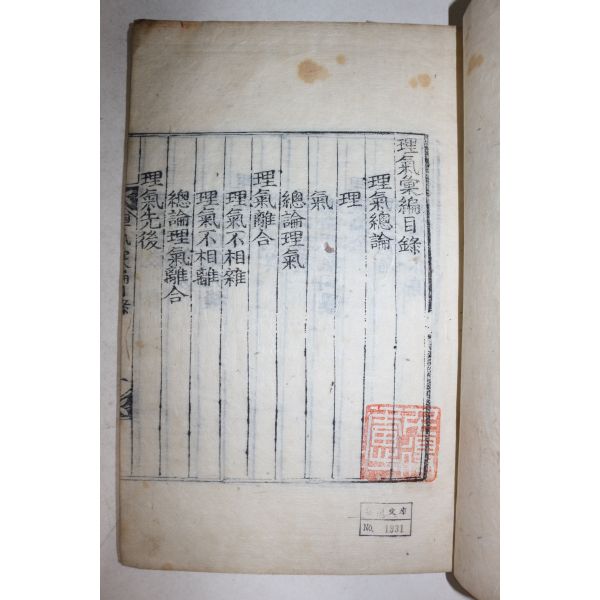 理氣彙編目錄
理氣總論
理
氣
總論理氣
理氣離合
理氣不相雜
理氣不相離
總論理氣離合
理氣先後
文庫
No. 1931